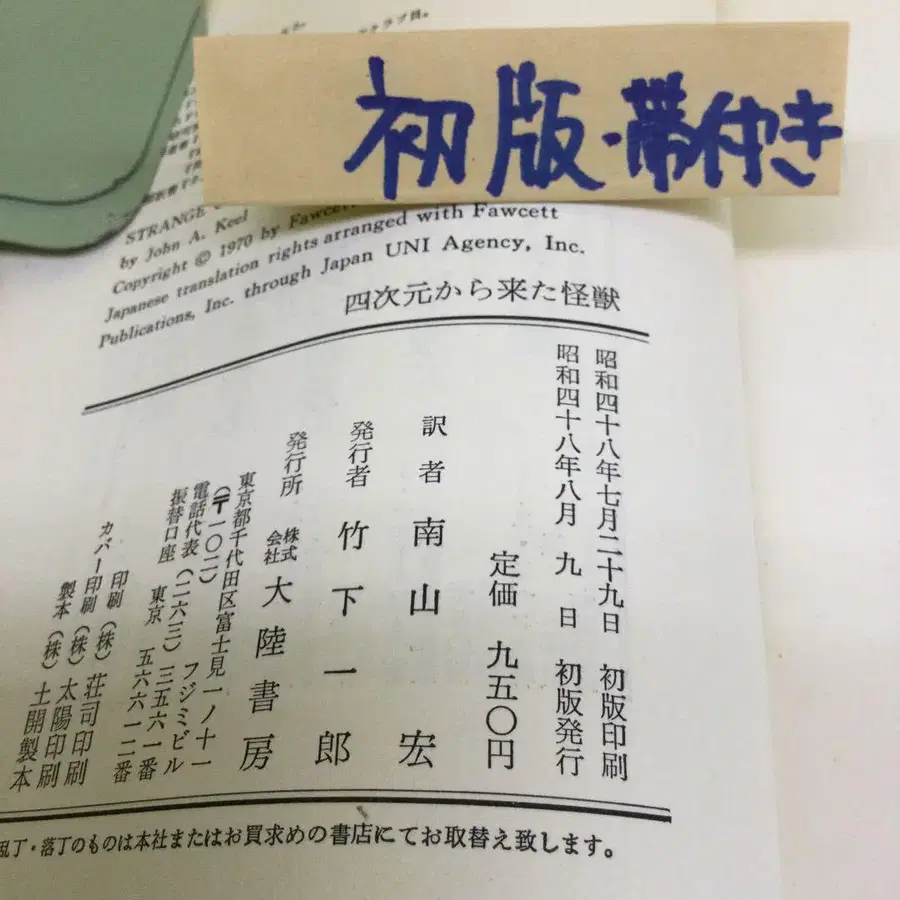 初版・帯付き
STRANGE
by John A. Keel
Copyright © 1970 by Fawcett
Japanese translation rights arranged with Fawcett
Publications, Inc. through Japan UNI Agency, Inc.
四次元から来た怪獣
昭和四十八年七月二十九日 初版印刷
昭和四十八年八月 九 日 初版発行
定価 九五〇円
訳者 南山 宏
発行者 竹下一郎
発行所 株式会社 大陸書房
東京都千代田区富士見一ノ十一
(〒一〇二) フジミビル
電話代表(二六三)三五六一番
振替口座 東京 五六六一二番
印刷(株)荘司印刷
カバー印刷(株)太陽印刷
製本(株)土開製本
乱丁・落丁のものは本社またはお買求めの書店にてお取替え致します。